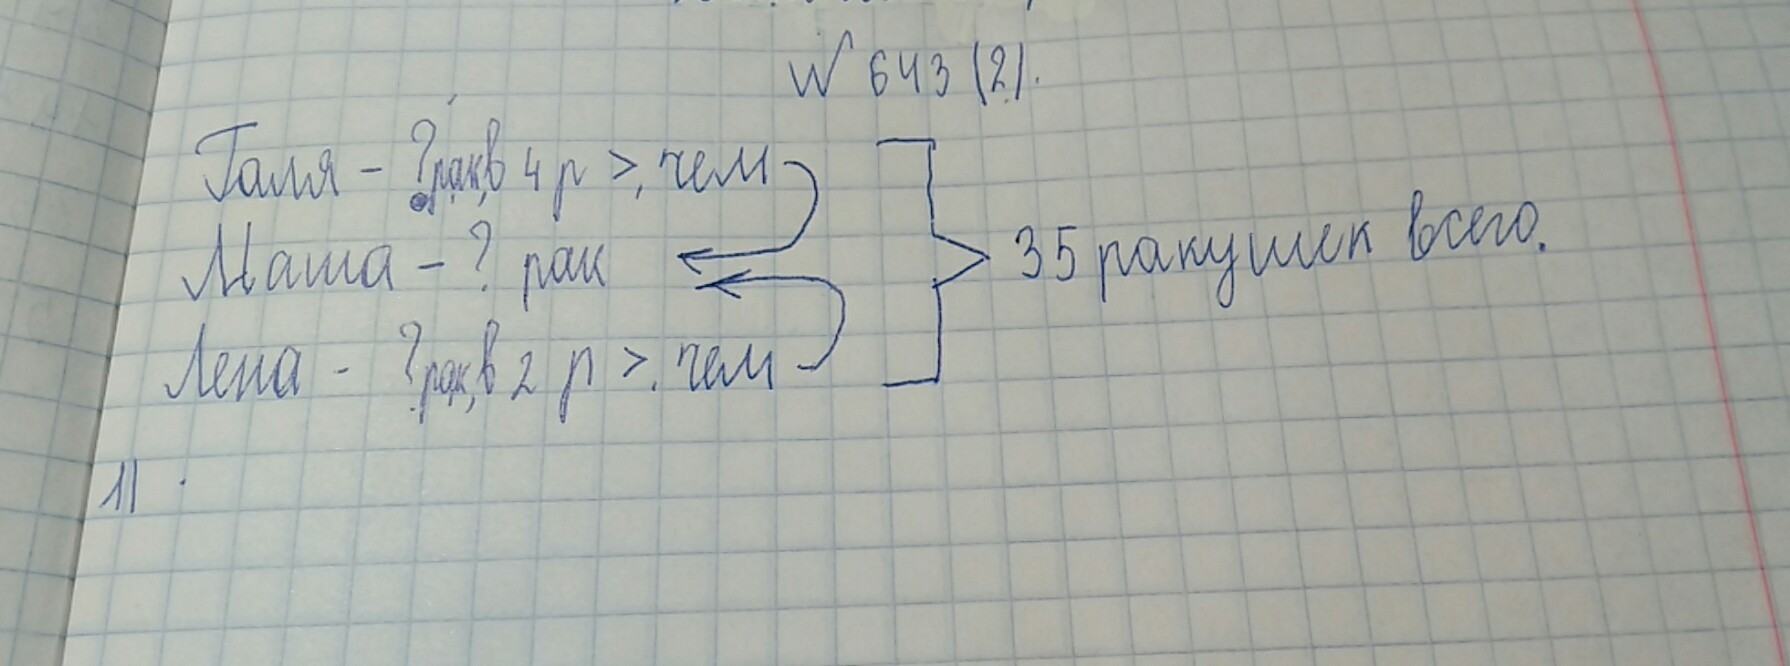 № 643 (2).
Галя - ? рак, в 4 р >, чем
Маша - ? рак
Лена - ? рак, в 2 р >, чем
35 ракушек всего.
1)